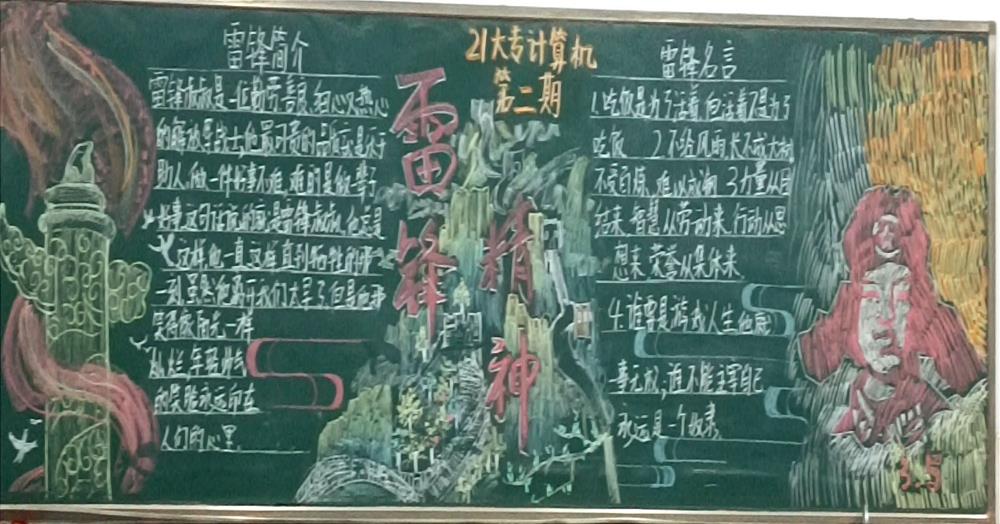 雷锋简介
雷锋叔叔是一位勤劳善良、细心又热心
的解放军战士他最可贵的品质就是乐于
助人,做一件好事不难,难的是做一辈子
好事这句话说的就是雷锋叔叔,他总是
这样他一直这样直到牺牲的那
一刻虽然他离开我们太早了但是他那
笑得像阳光一样
灿烂、年轻帅气
的笑脸永远印在
人们的心里
21大专计算机
第二期
雷锋
精神
雷锋名言
1.吃饭是为了活着,但活着不是为了
吃饭 2不经风雨,长不成大树
不受百炼,难以成钢 3力量从团
结来,智慧从劳动来,行动从思
想来,荣誉从集体来
4.谁要是游戏人生,他就
一事无成;谁不能主宰自己
永远是一个奴隶
3.5